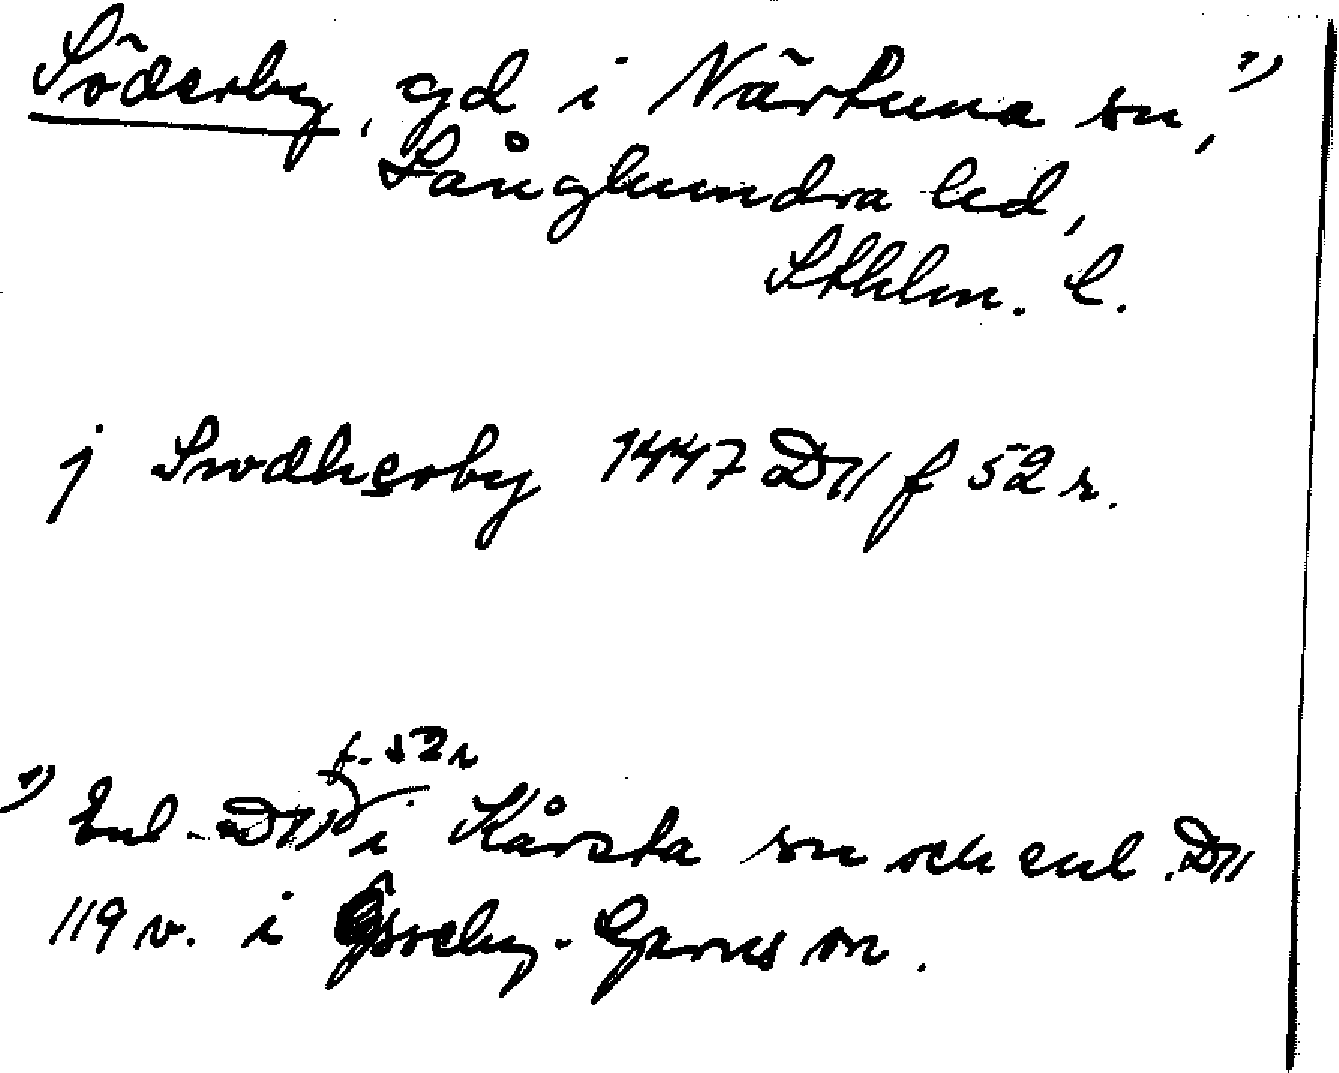 Söderby, gd i Närtuna sn, ¹⁾
Långhundra hd,
Sthlm. l.
j Swdherby 1447 D11 f 52 r.
f. 52 r
¹⁾ Enl. D11 i Kårsta sn och enl. D11
119 v. i Össeby-Garns sn.